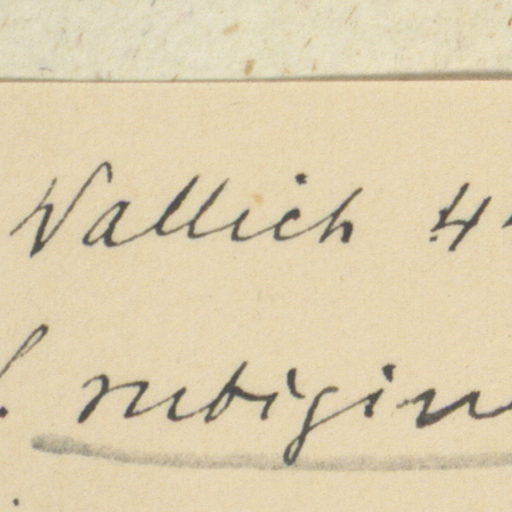 Wallich 4
rubigin